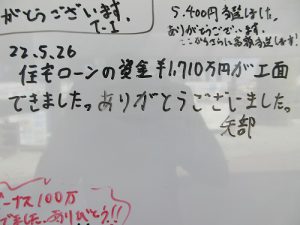 がとうございます。
T-I
5.400円当選しました。
ありがとうございます。
ここからさらに高額当選します!
22.5.26
住宅ローンの資金¥1,710万円が工面
できましたっ。ありがとうございました。
矢部
ボーナス100万
でました、ありがとう!!